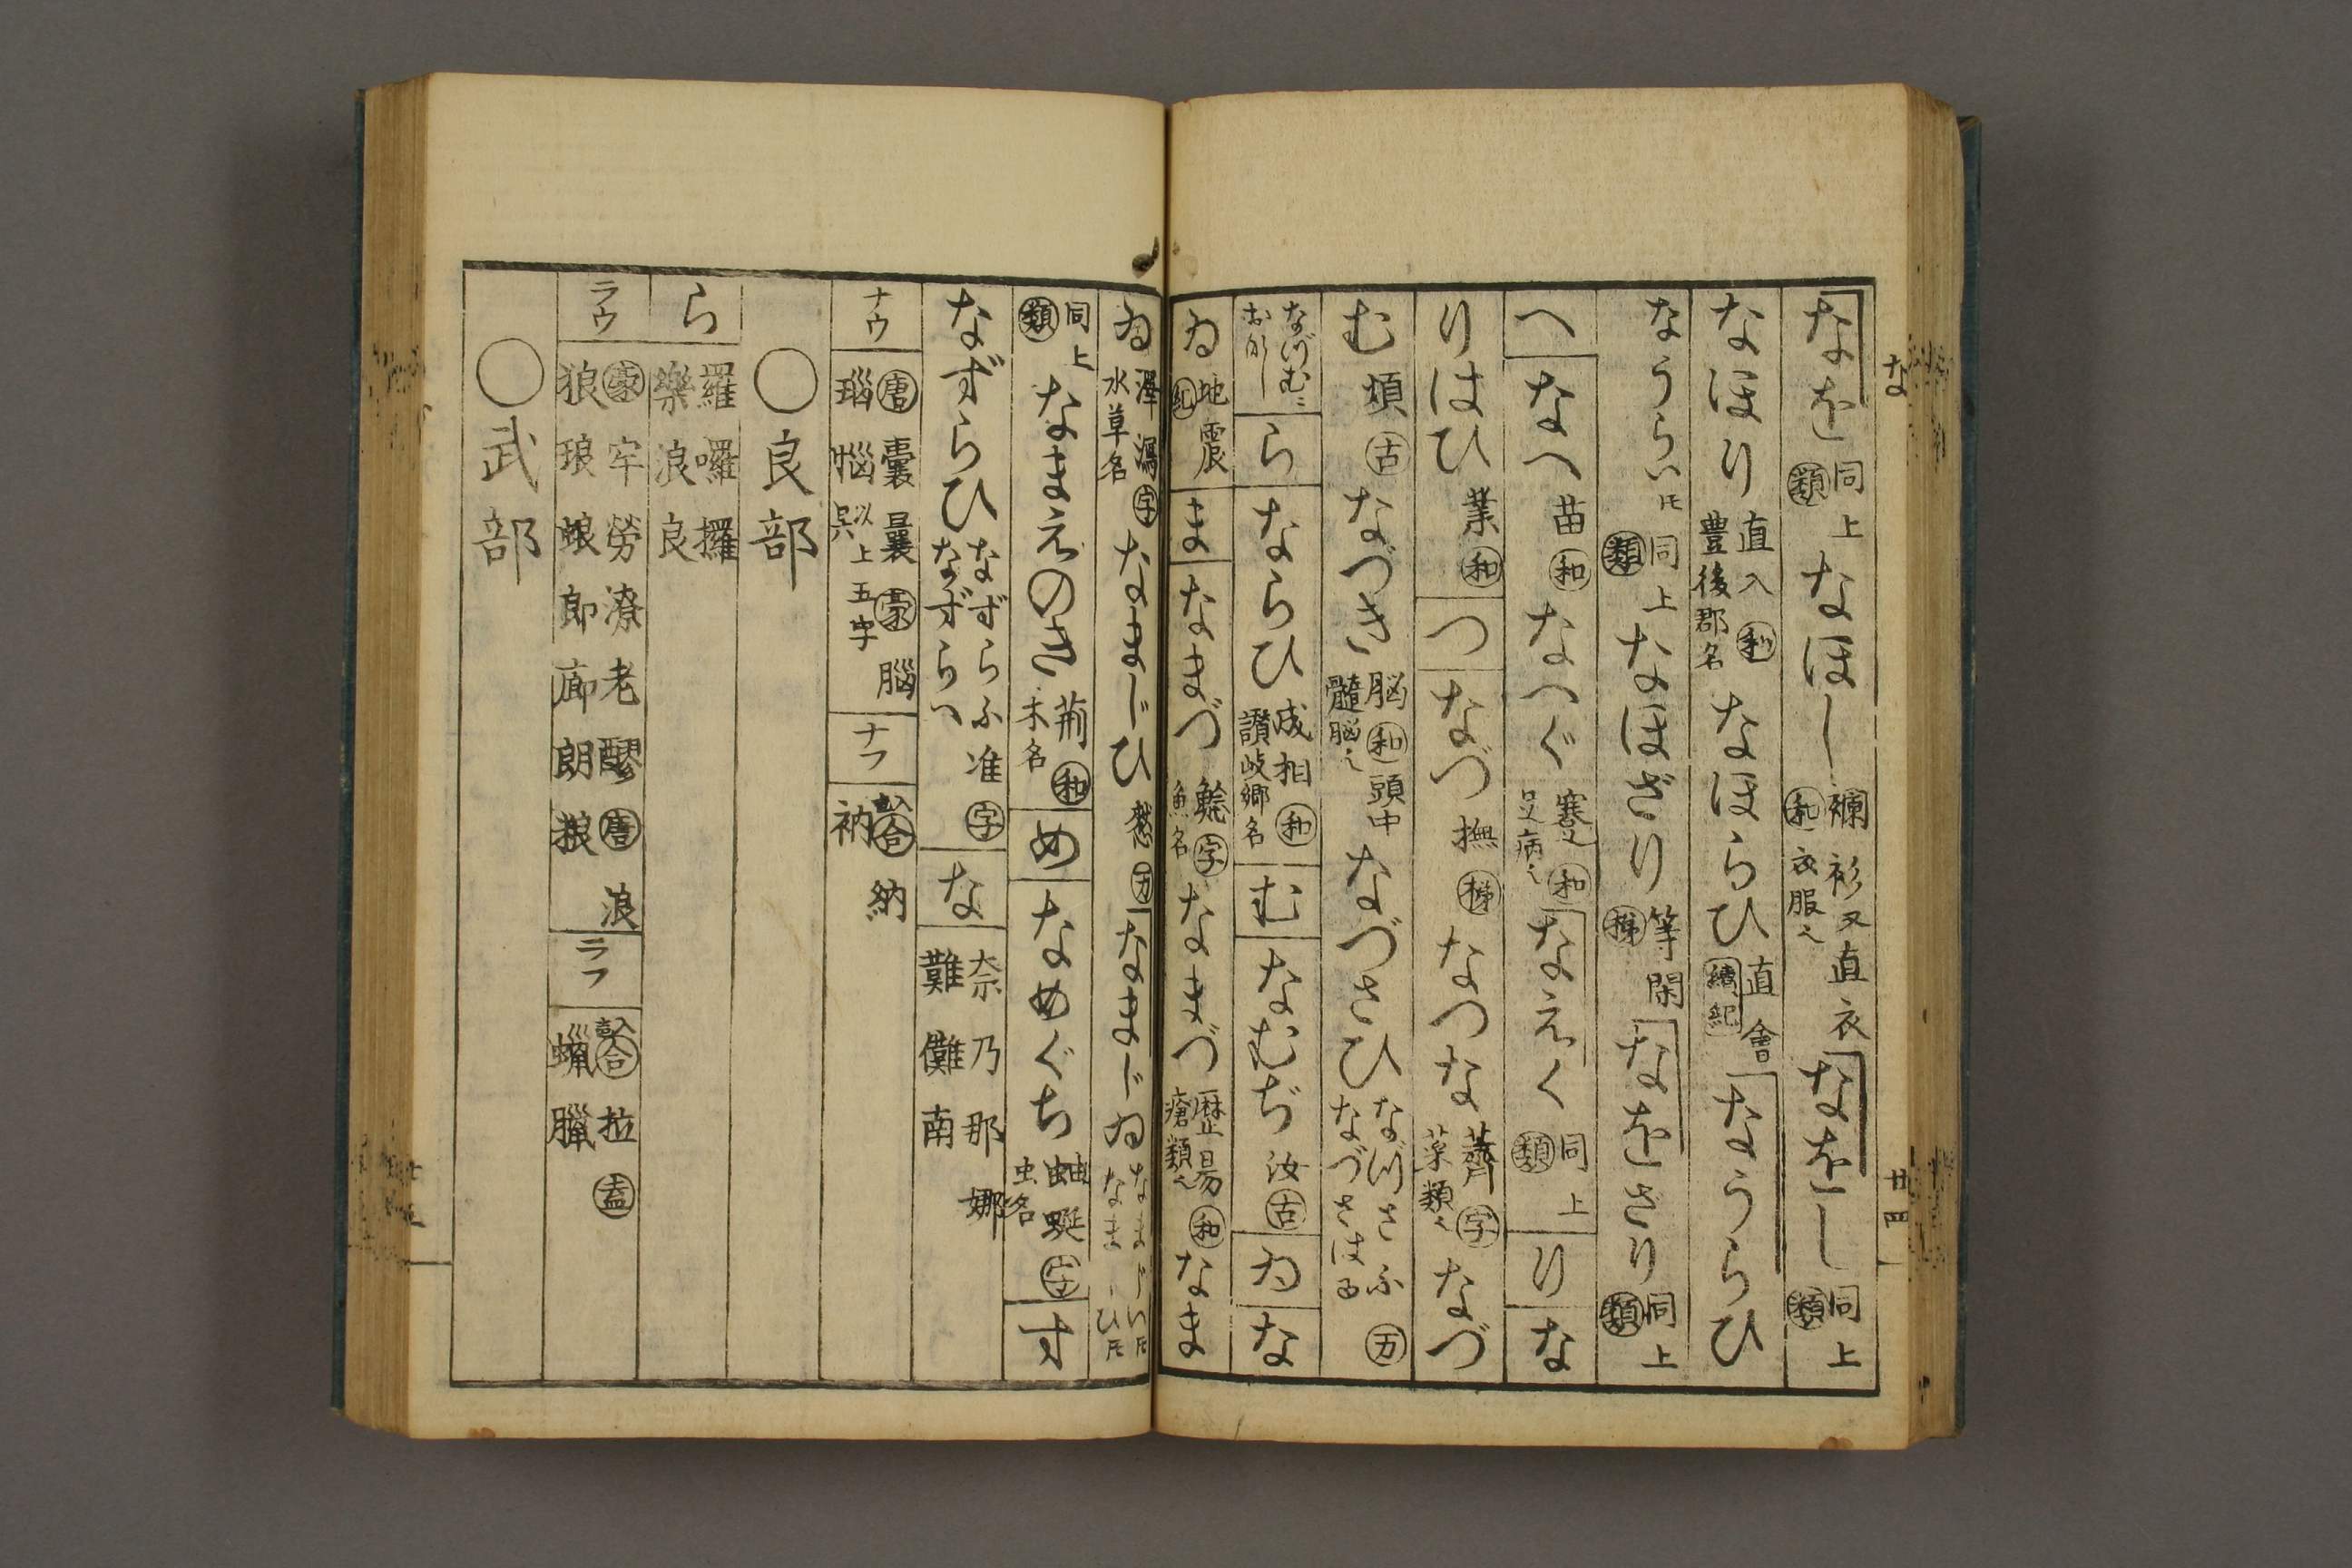 な
廿四
なを 同上 類 なほし 襴衫又直衣 和 衣服也 なをし 同上 類
なほり 直入 和 豊後郡名 なほらひ 直會 續紀 なうらひ
なうらい 同上 類 なほざり 等閑 なをさり 同上 類
へ なへ 苗 和 なへぐ 蹇 和 なえく 同上 類 り な
りはひ 業 和 つ なづ 撫 なつな 薺 字 菜類也 なづ
む 煩 古 なづき 脳 和 頭中髓脳也 なづさひ なづさふ なづさはる 万
なづむ ら ならひ 成相 和 讃岐郷名 む なむぢ 汝 古 ゐ な
ゐ 地震 紀 ま なまづ 鯰 字 魚名 なまづ 歴昜 和 瘡類也 なま
ゐ 澤瀉 字 水草名 なまじひ 憖 万 なまじゐ
同上 類 なまえのき 荊 和 木名 め なめぐぢ 蚰蜒 字 虫名 す
なずらひ なずらふ なずらへ 准 字 な 奈乃那娜難儺南
ナウ 唐 囊曩 豪 腦瑙惱 以上五字呉 ナフ 合 納衲
○良部
ら 羅囉攞樂浪良
ラウ 豪 牢勞潦老醪 唐 浪狼琅蜋郎廊朗㮾 ラフ 合 拉 盍 蠟臘
○武部